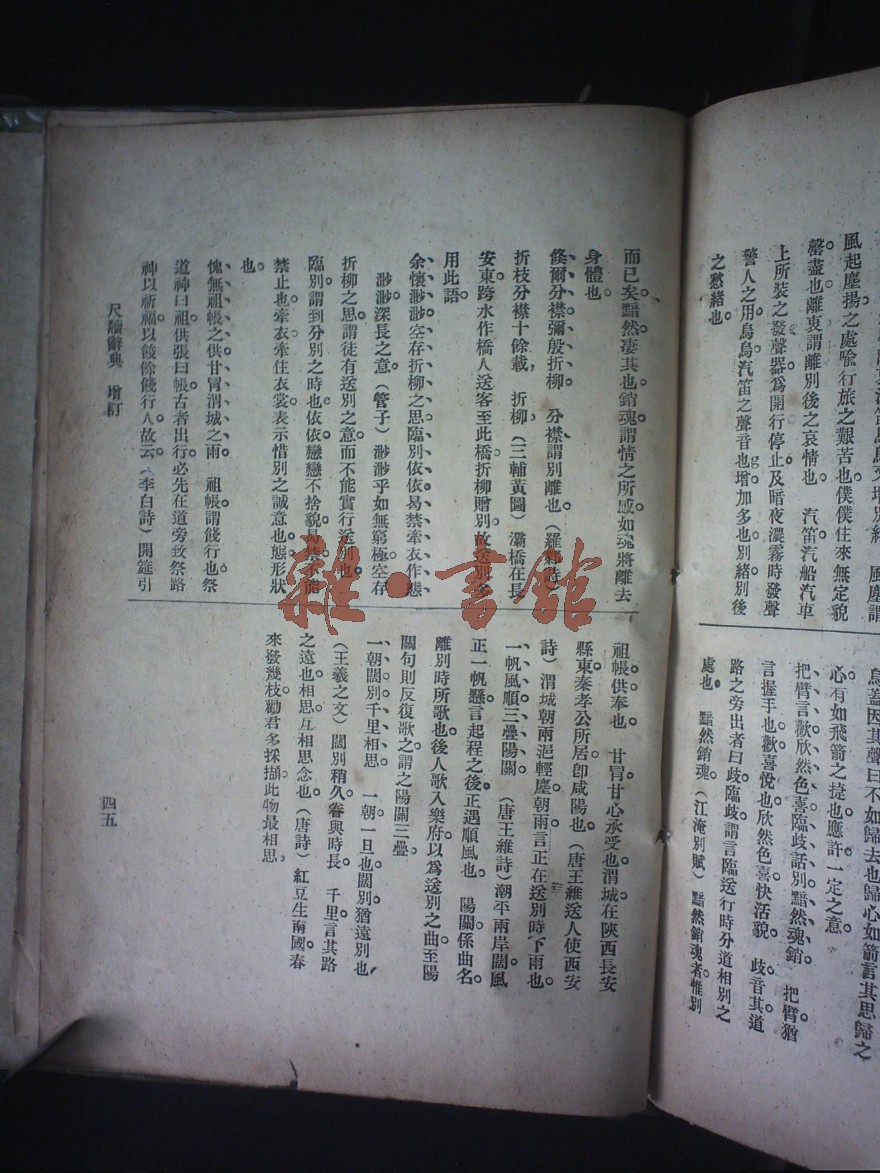 風起塵揚之處喻行旅之艱苦也。僕僕往來無定貌
罄盡也。離衷謂離別後之哀情也 汽笛汽船汽車
上所裝之發聲器爲開行停止及暗夜濃霧時發聲
警人之用。烏烏汽笛之聲音也。增加多也。別緒別後
之愁緒也。
鳥蓋因其聲曰不如歸去也。歸心如箭言其思歸之
心有如飛箭之捷也。應許一定之意。
把臂言歡欣然色喜臨歧話別黯然魂銷 把臂猶
言握手也。歡喜悅也。欣然色喜快活貌 歧音其道
路之旁出者曰歧。臨歧謂言臨送行時分道相別之
處也 黯然銷魂。(江淹別賦)黯然銷魂者惟別
而已矣。黯然凄其也。銷魂謂情之所感如魂將離去
身體也。
倏爾分襟彌殷折柳 分襟謂別離也。
折枝分襟十餘載 折柳(三輔黃圖)灞橋在長
安東跨水作橋人送客至此橋折柳贈別故送別多
用此語。
余懷渺渺空存折柳之思臨別依依曷禁牽衣作態
渺渺深長之意(管子)渺渺乎如無窮極空存
折柳之思謂徒有送別之意而不能實行送別也。
臨別謂到分別之時也。依依戀戀不捨貌曷禁不能
禁止也。牽衣牽住衣裳表示惜別之誠意也。態形狀
也。
愧無祖帳之供甘冒渭城之雨 祖帳謂餞行也。祭
道神曰祖供張曰帳古者出行必先在道旁致祭路
神以祈福以餕餘餞行人故云。(李白詩)開筵引
祖帳供奉也 甘冒甘心承受也。渭城在陝西長安
縣東秦孝公所居卽咸陽也。(唐王維送人使西安
詩)渭城朝雨浥輕塵朝雨言正在送別時下雨也。
一帆風順三疊陽關 (唐王維詩)潮平兩岸闊風
正一帆懸言起程之後正遇順風也 陽關係曲名
離別時所歌也。後人歌入樂府以爲送別之曲至陽
關句則反復歌之謂之陽關三疊
一朝闊別千里相思 一朝一旦也。闊別猶遠別也
(王羲之文)闊別稍久眷與時長。千里言其路
之遠也相思互相思念也。(唐詩)紅豆生南國春
來發幾枝勸君多採擷此物最相思。
尺牘辭典 增訂
四五
雜·書館